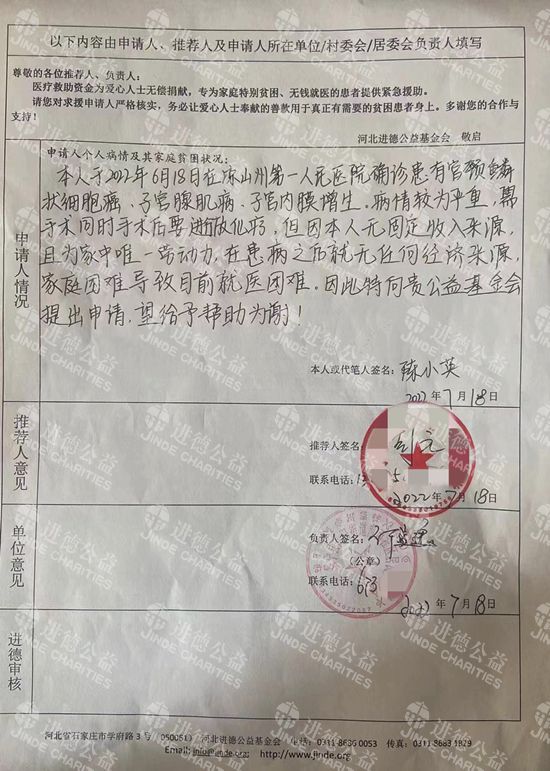 以下内容由申请人、推荐人及申请人所在单位/村委会/居委会负责人填写
尊敬的各位推荐人、负责人:
医疗救助资金为爱心人士无偿捐献,专为家庭特别贫困、无钱就医的患者提供紧急援助。
请您对求援申请人严格核实,务必让爱心人士奉献的善款用于真正有需要的贫困患者身上。多谢您的合作与
支持!
河北进德公益基金会 敬启
申请人情况
申请人个人病情及其家庭贫困状况:
本人于2022年6月18日在凉山州第一人民医院确诊患有宫颈鳞
状细胞癌、子宫腺肌病、子宫内膜增生。病情较为严重,需
手术同时手术后要进做化疗,但因本人无固定收入来源,
且为家中唯一劳动力,在患病之后就无任何经济来源,
家庭困难导致目前就医困难。因此特向贵公益基金会
提出申请,望给予帮助为谢!
本人或代笔人签名:陈小英
2022年7月18日
推荐人意见
推荐人签名:
联系电话:
2022年7月18日
单位意见
负责人签名:
(公章)
联系电话:
2022年7月18日
进德审核
河北省石家庄市学府路3号 050051 河北进德公益基金会 电话:0311-8636 0053 传真:0311-8683 1929
Email: info@jinde.org; http://www.jinde.org
进德公益
JINDE CHARITIES